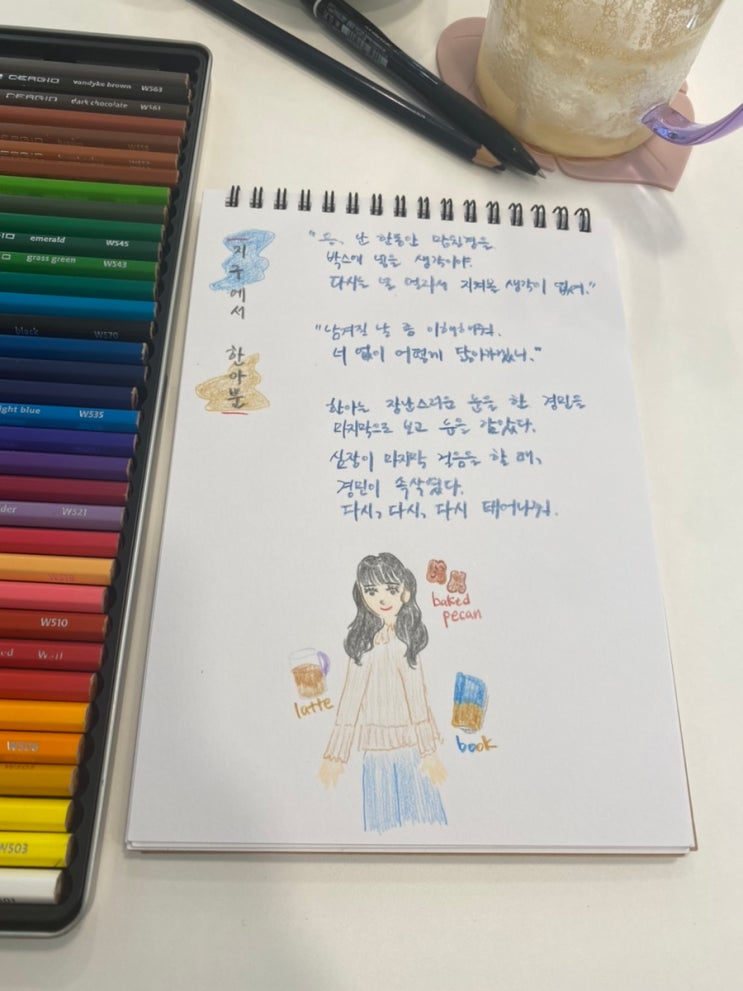 CERGIO vandyke brown W563
dark chocolate W561
emerald W545
grass green W543
black W570
light blue W535
W521
W510
W503
지구에서 한아뿐
"응, 난 한동안 망원경을
박스에 넣을 생각이야.
다시는 널 멀리서 지켜볼 생각이 없어."
"남겨질 날 좀 이해해줘.
너 없이 어떻게 닳아가겠니."
한아는 장난스러운 눈을 한 경민을
마지막으로 보고 눈을 감았다.
심장이 마지막 걸음을 할 때,
경민이 속삭였다.
다시, 다시, 다시 태어나줘.
baked
pecan
latte
book